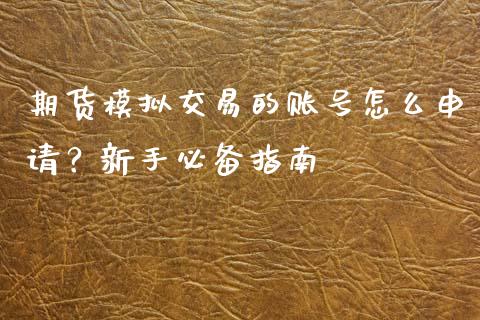 期货模拟交易的账号怎么申
请？新手必备指南